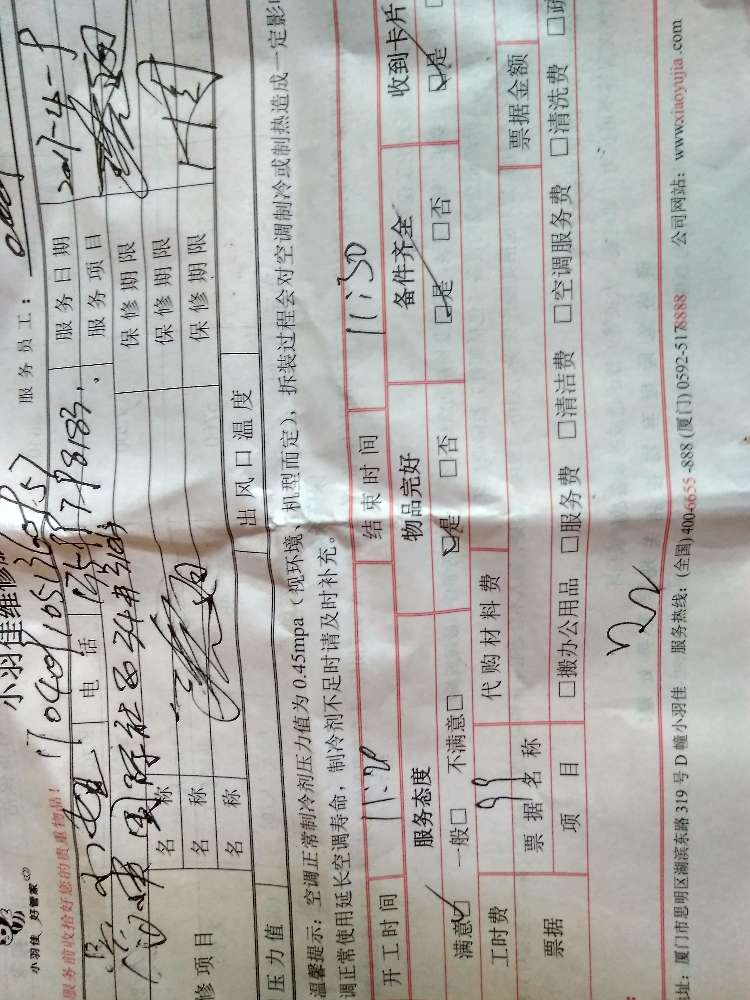 小羽佳 好管家
小羽佳维修
服务员工：
服务前收拾好您的贵重物品！
17040110513605
电 话
178183
服务日期
2017-4-9
国际社区34#303
服务项目
名 称
保修期限
名 称
保修期限
修项目
名 称
保修期限
压力值
出风口温度
温馨提示：空调正常制冷剂压力值为 0.45mpa（视环境、机型而定），拆装过程会对空调制冷或制热造成一定影
调正常使用延长空调寿命，制冷剂不足时请及时补充。
开工时间 11:20 结束时间 11:30
服务态度 物品完好 备件齐全 收到卡片
满意☑ 一般□ 不满意□ ☑是 □否 ☑是 □否 ☑是
工时费 99 代购材料费
票据 票据名称 票据金额
项 目 □搬办公用品 □服务费 □清洁费 □空调服务费 □清洗费 □疏
址：厦门市思明区湖滨东路 319 号 D 幢小羽佳 服务热线：(全国)400-6655-888 (厦门) 0592-5178888 公司网站：www.xiaoyujia.com